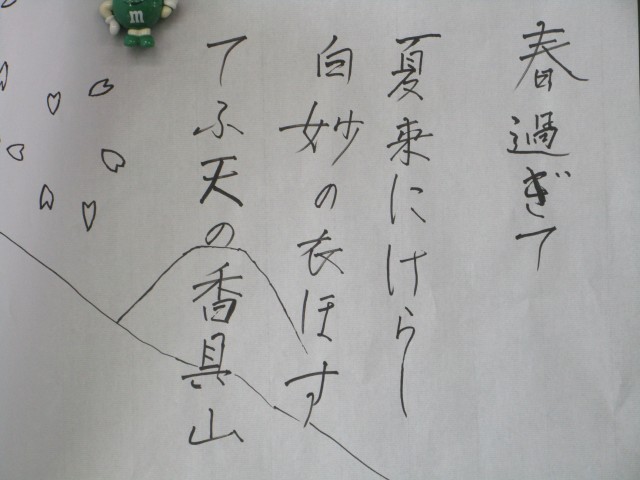 春過ぎて
夏来にけらし
白妙の衣ほす
てふ天の香具山
m